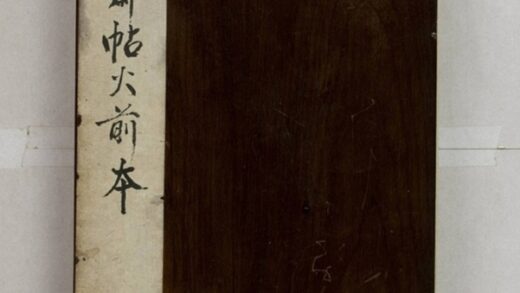 帖火前本